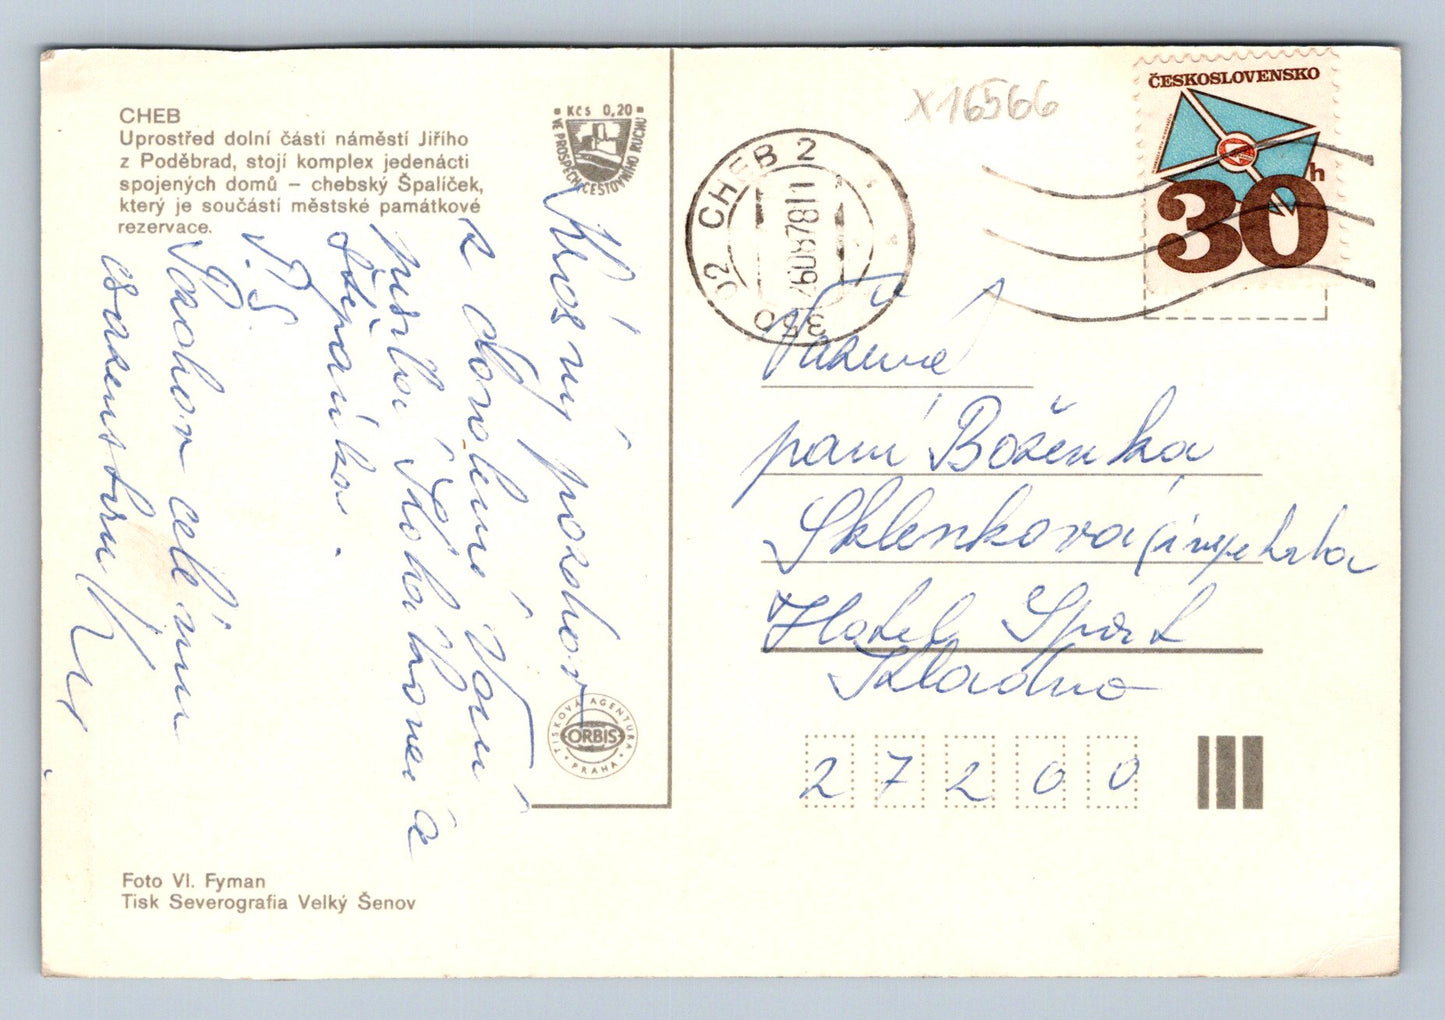 CHEB
Uprostřed dolní části náměstí Jiřího
z Poděbrad, stojí komplex jedenácti
spojených domů – chebský Špalíček,
který je součástí městské památkové
rezervace.
Kčs 0,20
VE PROSPĚCH CESTOVNÍHO RUCHU
Krásný pozdrav
z dovolené Vám
Štěpánka.
P.S
Pozdrav celému
TISKOVÁ AGENTURA
ORBIS
PRAHA
Foto Vl. Fyman
Tisk Severografia Velký Šenov
X16566
ČESKOSLOVENSKO
30h
CHEB 2
350 02
Vážená
paní Boženka
Sklenková
Hotel Sport
Kladno
27200